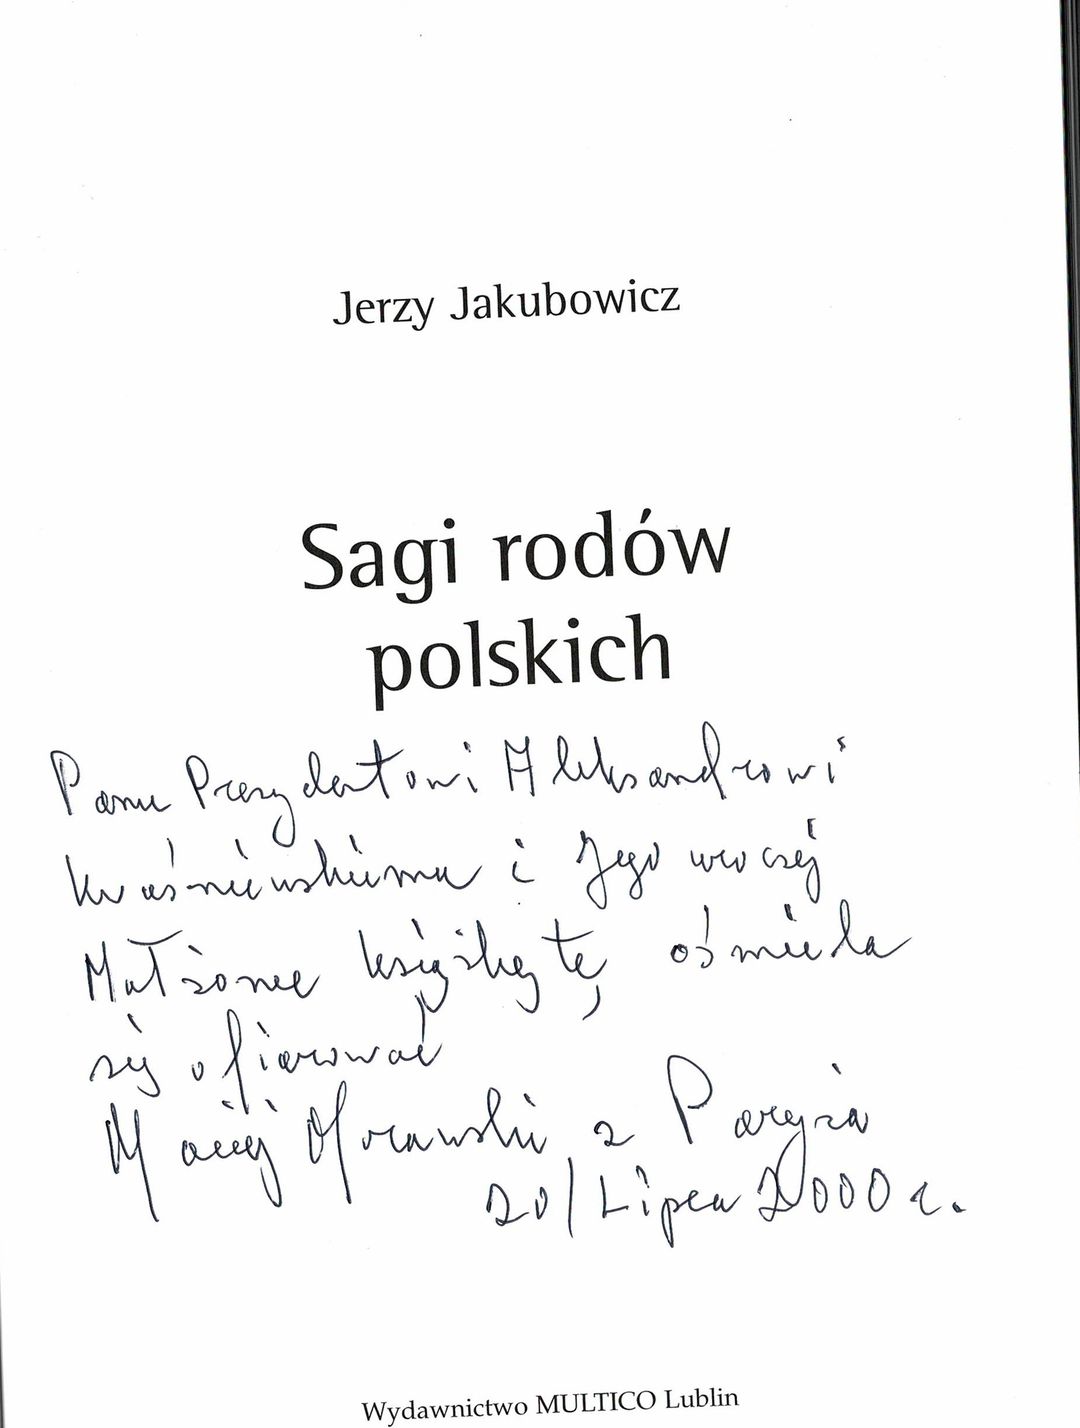 Jerzy Jakubowicz
Sagi rodów
polskich
Panu Prezydentowi Aleksandrowi
Kwaśniewskiemu i Jego uroczej
Małżonce książkę tę ośmiela
się ofiarować
Maciej Morawski z Paryża
20/Lipca 2000 r.
Wydawnictwo MULTICO Lublin